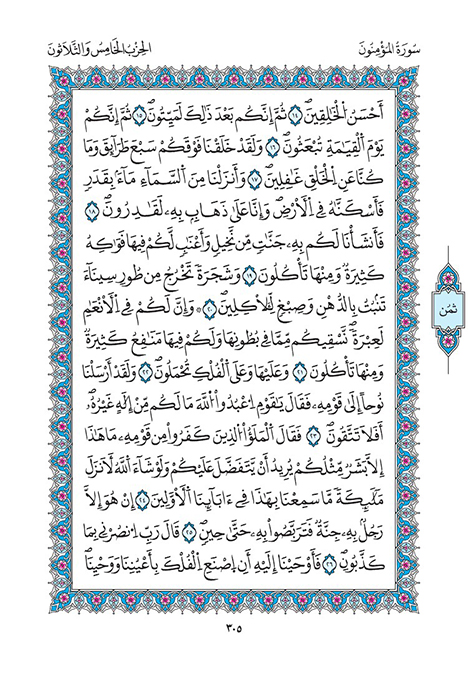 سُورَةُ المُؤْمِنُونَ
الحِزْبُ الخَامِسُ وَالثَّلَاثُونَ
أَحْسَنُ اُ۬لْخَٰلِقِينَۖ ١٤ ثُمَّ إِنَّكُم بَعْدَ ذَٰلِكَ لَمَيِّتُونَۖ ١٥ ثُمَّ إِنَّكُمْ
يَوْمَ اَ۬لْقِيَٰمَةِ تُبْعَثُونَۖ ١٦ وَلَقَدْ خَلَقْنَا فَوْقَكُمْ سَبْعَ طَرَآئِقَ وَمَا
كُنَّا عَنِ اِ۬لْخَلْقِ غَٰفِلِينَۖ ١٧ وَأَنزَلْنَا مِنَ اَ۬لسَّمَآءِ مَآءَۢ بِقَدَرٖ
فَأَسْكَنَّٰهُ فِے اِ۬لَارْضِۖ وَإِنَّا عَلَىٰ ذَهَابِۢ بِهِۦ لَقَٰدِرُونَۖ ١٨
فَأَنشَأْنَا لَكُم بِهِۦ جَنَّٰتٖ مِّن نَّخِيلٖ وَأَعْنَٰبٖ لَّكُمْ فِيهَا فَوَٰكِهُ
كَثِيرَةٞ وَمِنْهَا تَأْكُلُونَۖ ١٩ وَشَجَرَةٗ تَخْرُجُ مِن طُورِ سِينَآءَ
تَنۢبُتُ بِالدُّهْنِ وَصِبْغٖ لِّلَاكِلِينَۖ ٢٠ وَإِنَّ لَكُمْ فِے اِ۬لَانْعَٰمِ
لَعِبْرَةٗۖ نَّسْقِيكُم مِّمَّا فِے بُطُونِهَا وَلَكُمْ فِيهَا مَنَٰفِعُ كَثِيرَةٞ
وَمِنْهَا تَأْكُلُونَۖ ٢١ وَعَلَيْهَا وَعَلَى اَ۬لْفُلْكِ تُحْمَلُونَۖ ٢٢ وَلَقَدْ أَرْسَلْنَا
نُوحاً إِلَىٰ قَوْمِهِۦ فَقَالَ يَٰقَوْمِ اِ۟عْبُدُواْ اُ۬للَّهَ مَا لَكُم مِّنِ إِلَٰهٍ غَيْرُهُۥۖ
أَفَلَا تَتَّقُونَۖ ٢٣ فَقَالَ اَ۬لْمَلَؤُاْ اُ۬لذِينَ كَفَرُواْ مِن قَوْمِهِۦ مَا هَٰذَا
إِلَّا بَشَرٞ مِّثْلُكُمْ يُرِيدُ أَنْ يَّتَفَضَّلَ عَلَيْكُمْ وَلَوْ شَآءَ اَ۬للَّهُ لَأَنزَلَ
مَلَٰٓئِكَةٗ مَّا سَمِعْنَا بِهَٰذَا فِے ءَابَآئِنَا اَ۬لَاوَّلِينَۖ ٢٤ إِنْ هُوَ إِلَّا
رَجُلُۢ بِهِۦ جِنَّةٞ فَتَرَبَّصُواْ بِهِۦ حَتَّىٰ حِينٖۖ ٢٥ قَالَ رَبِّ اِ۟نصُرْنِے بِمَا
كَذَّبُونِۖ ٢٦ فَأَوْحَيْنَآ إِلَيْهِ أَنِ اِ۪صْنَعِ اِ۬لْفُلْكَ بِأَعْيُنِنَا وَوَحْيِنَاۖ
ثُمُن
٣٠٥